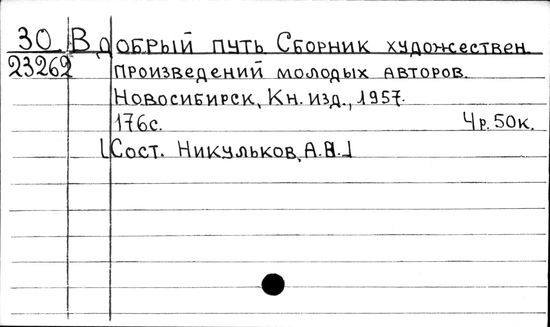 30 В добрый путь Сборник художествен.
23262 произведений молодых авторов.
Новосибирск, Кн. изд., 1957.
176с. 4р. 50к.
[Сост. Никульков, А.В.]